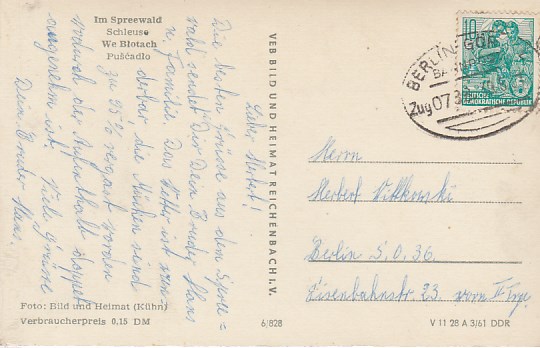 Im Spreewald
Schleuse
We Blotach
Pušćadlo
Lieber Herbert!
Die besten Grüsse aus dem Spree=
wald sendet Dir Dein Bruder Hans
u. Familie. Das Wetter ist wun-
derbar, die Mücken sind
zu 95% vergast worden
wodurch der Aufenthalt doppelt
angenehm ist. Viele Grüsse
Dein Bruder Hans.
Foto: Bild und Heimat (Kühn)
Verbraucherpreis 0,15 DM
VEB BILD UND HEIMAT REICHENBACH I. V.
6/828
10
DEUTSCHE
DEMOKRATISCHE REPUBLIK
BERLIN-GÖR
BAHNPOST
Zug 0783
Herrn
Herbert Vittkowski
Berlin S.O. 36.
Eisenbahnstr. 23. vorn II Trp.
V 11 28 A 3/61 DDR